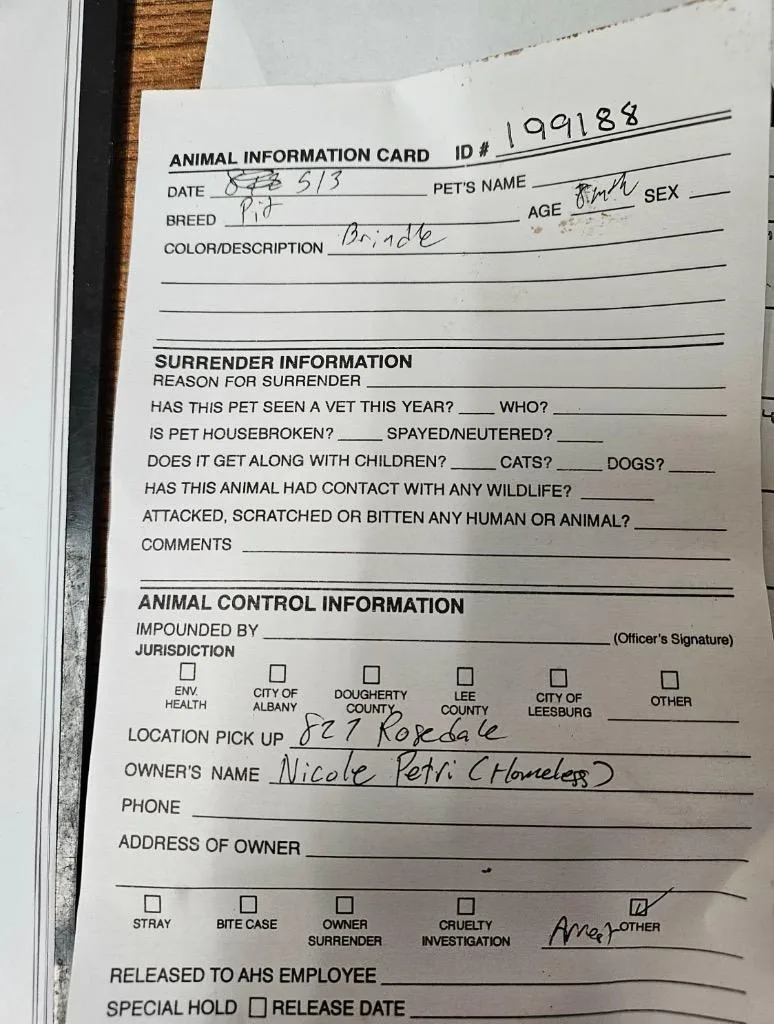 ANIMAL INFORMATION CARD ID # 199188
DATE 5/3 PET'S NAME
BREED Pit AGE 8 mth SEX
COLOR/DESCRIPTION Brindle
SURRENDER INFORMATION
REASON FOR SURRENDER
HAS THIS PET SEEN A VET THIS YEAR? WHO?
IS PET HOUSEBROKEN? SPAYED/NEUTERED?
DOES IT GET ALONG WITH CHILDREN? CATS? DOGS?
HAS THIS ANIMAL HAD CONTACT WITH ANY WILDLIFE?
ATTACKED, SCRATCHED OR BITTEN ANY HUMAN OR ANIMAL?
COMMENTS
ANIMAL CONTROL INFORMATION
IMPOUNDED BY (Officer's Signature)
JURISDICTION
ENV. HEALTH
CITY OF ALBANY
DOUGHERTY COUNTY
LEE COUNTY
CITY OF LEESBURG
OTHER
LOCATION PICK UP 827 Rosedale
OWNER'S NAME Nicole Petri (Homeless)
PHONE
ADDRESS OF OWNER
STRAY
BITE CASE
OWNER SURRENDER
CRUELTY INVESTIGATION
Arrest OTHER
RELEASED TO AHS EMPLOYEE
SPECIAL HOLD RELEASE DATE